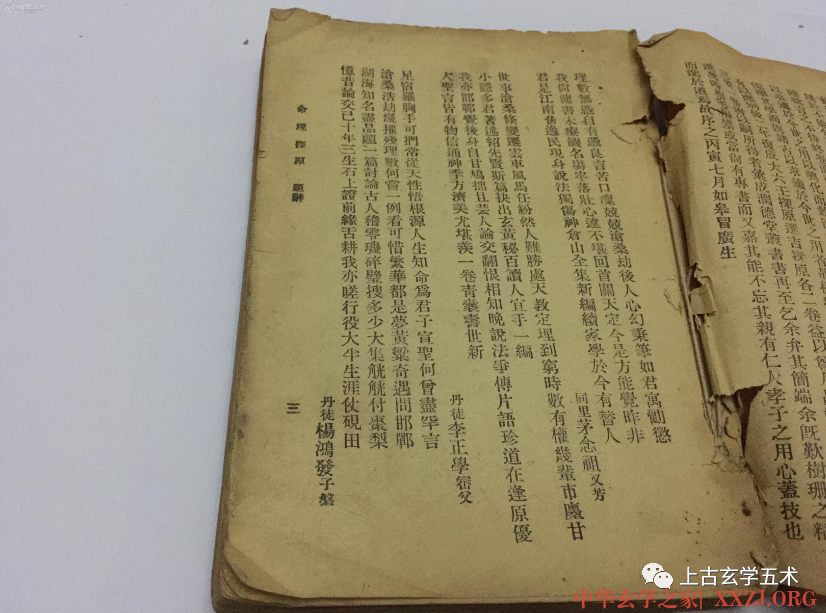 樹珊之精
成潤德堂叢書書再至乞余弁其簡端余既歎
有專書而又嘉其能不忘其親有仁人孝子之用心蓋技也
而進於道焉故序之丙寅七月如皋冒廣生
理數無愚自有良言苦口凜兢兢滄桑劫後人心幻秉筆如君寓勸懲
我尚傭書未療饑名場牢落壯心違不堪回首關天定今是方能覺昨非
君是江南舊逸民現身說法獨傷神倉山全集新編續家學於今有替人
同里茅念祖又芳
世事滄桑條變遷雲車風馬任紛然人雖勝處天教定理到窮時數有權幾輩市廛甘
小隱多君著述紹先賢斯篇抉出玄黃秘百讀人宜手一編
我亦邯鄲覺後身自甘鳩拙且芸人論交翻恨相知晚說法爭傳片語珍道在逢原優
入聖言皆有物信通神季方濟美尤堪羨一卷青囊壽世新
丹徒李正學密父
星宿羅胸手可捫常從天性悟根源人生知命為君子宣聖何曾盡罕言
滄桑浩劫幾摧殘理數何嘗一例看可惜繁華都是夢黃粱奇遇問邯鄲
湖海知名盡品題一篇討論古人稽零璣碎璧搜多少大集觥觥付棗梨
憶昔論交已十年三生石上證前緣舌耕我亦嗟行役大半生涯仗硯田
丹徒楊鴻發子磐
命理探原 題辭
三
上古玄学五术
中华玄学之家| XXZJ.ORG